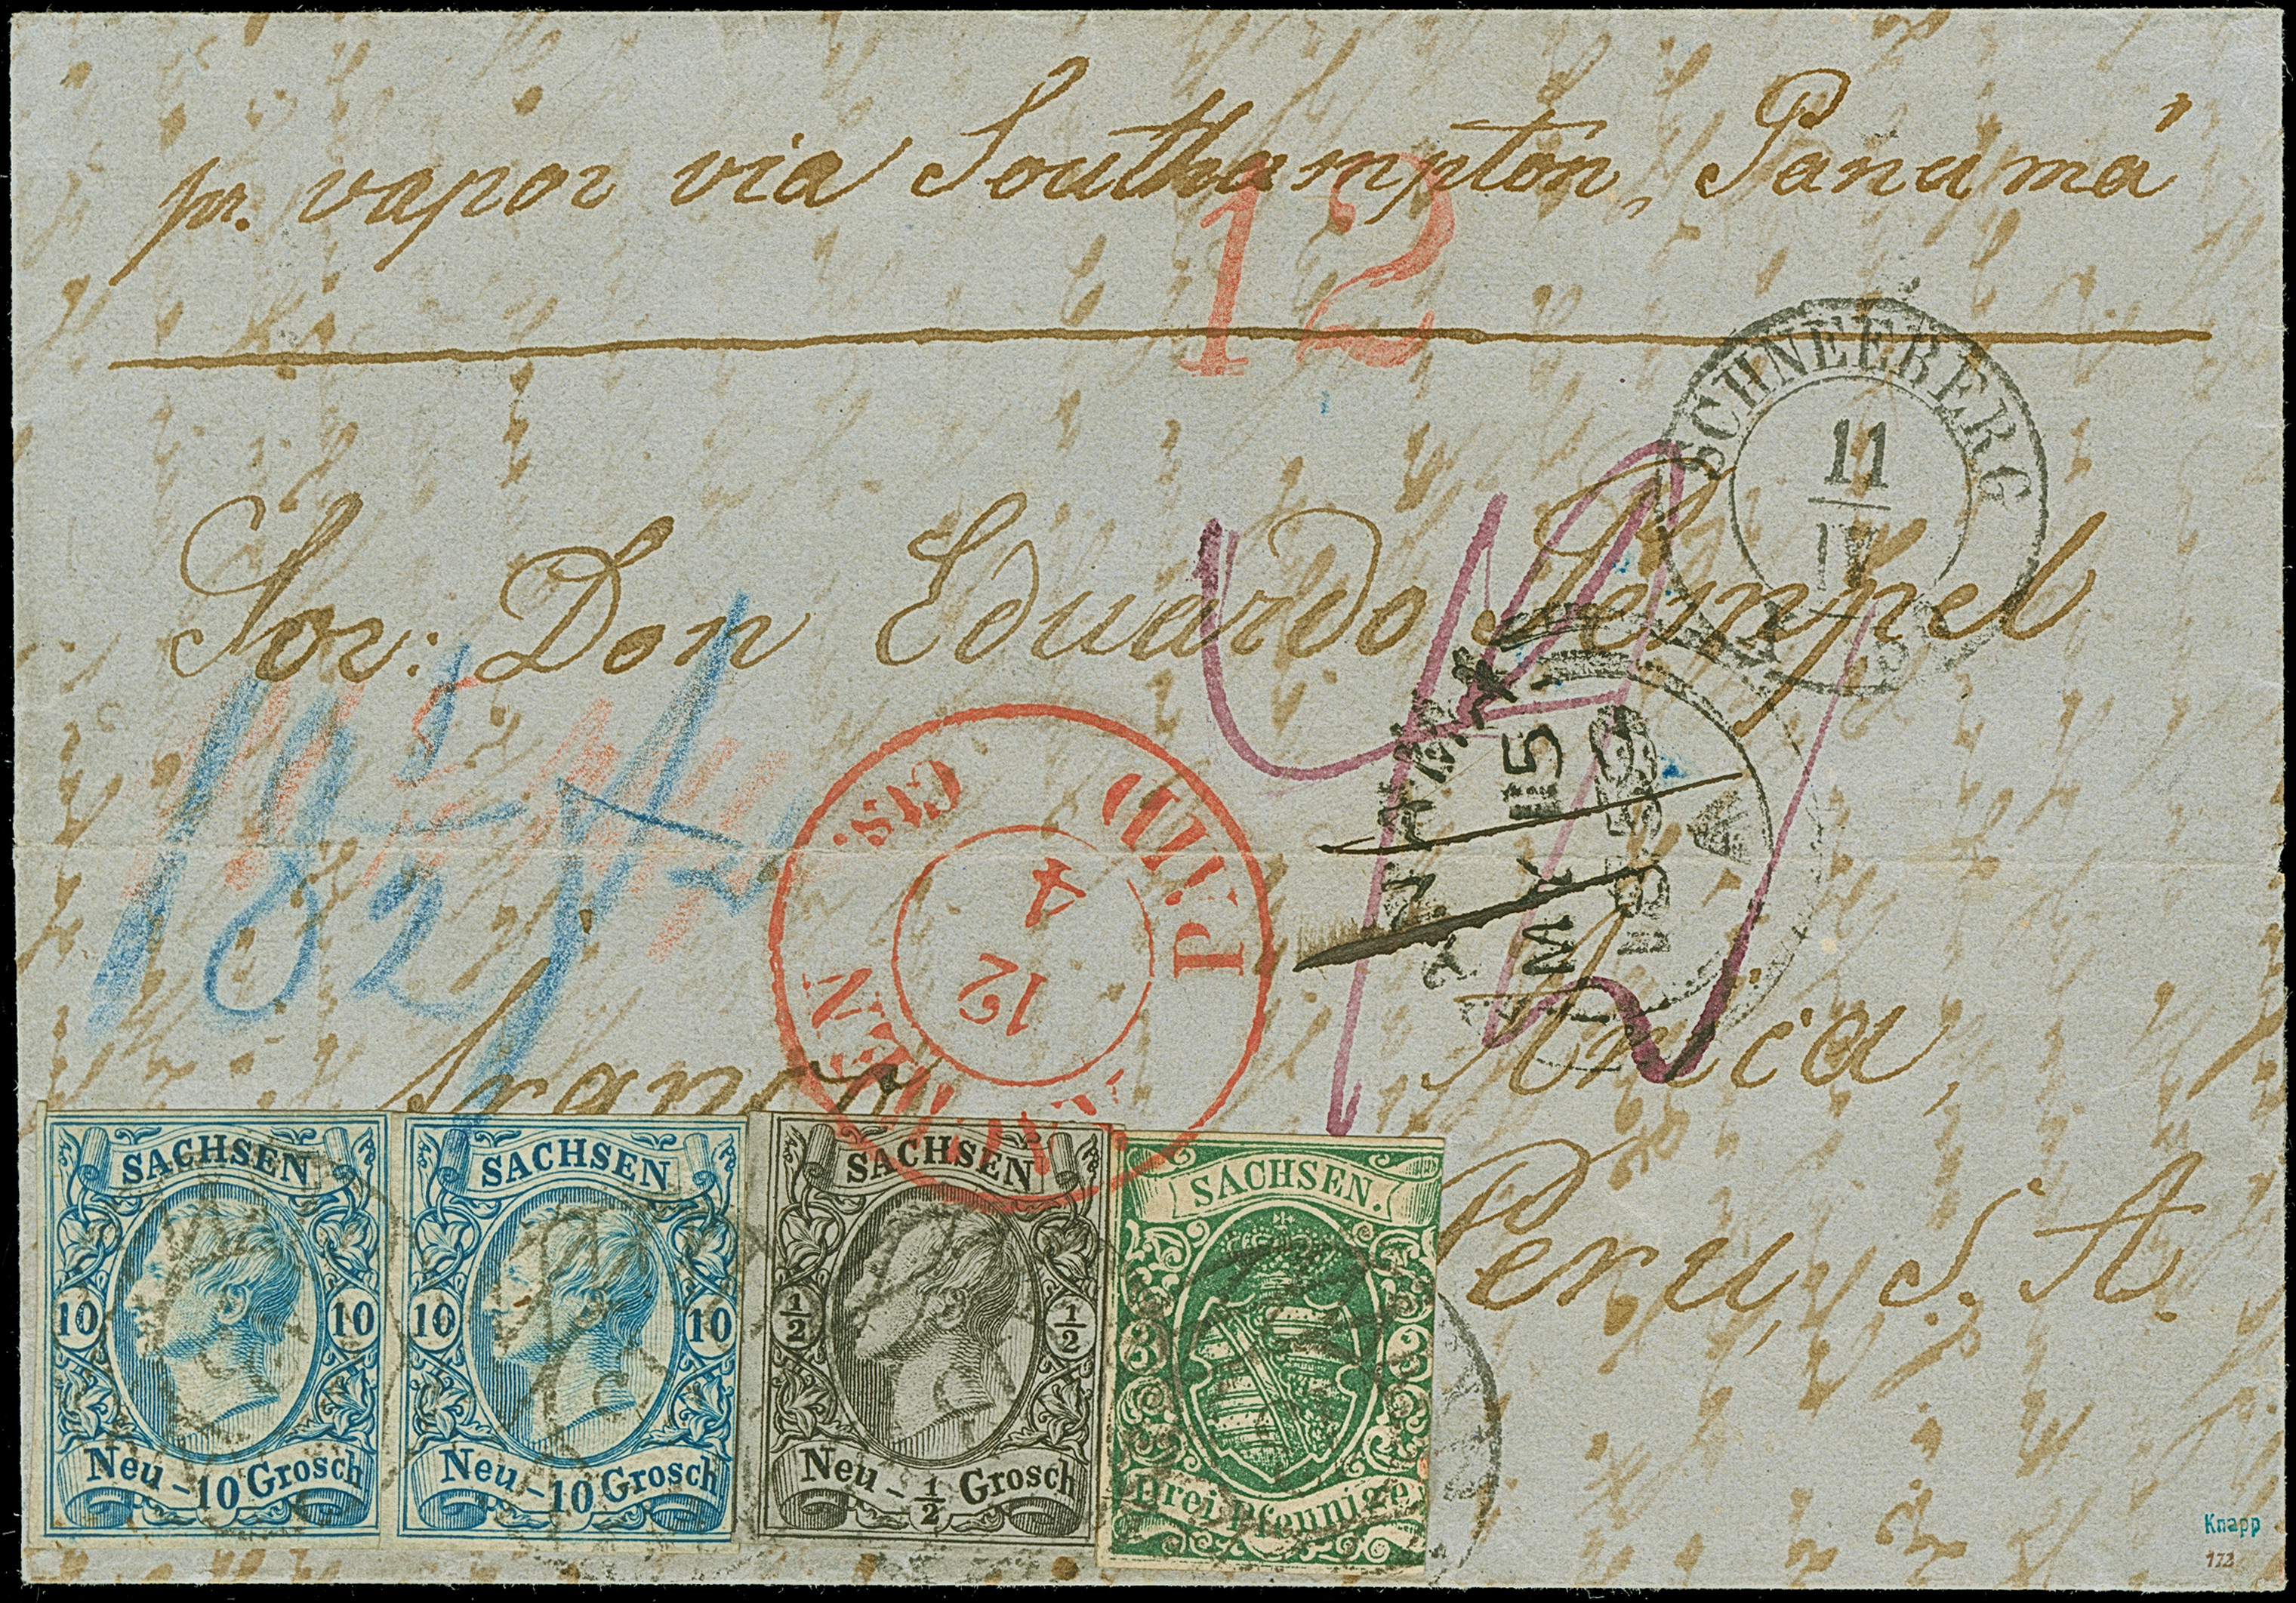 pr. vapor via Southampton, Panamá
12
SCHNEEBERG
11
IV
Sor: Don Eduardo Pempel
PANAMA
MY 15
1859
A
PAID
12 4
AACHEN
franco
Arica,
Peru, S. A.
SACHSEN
10 10
Neu-10 Grosch
SACHSEN
10 10
Neu-10 Grosch
SACHSEN
1/2 1/2
Neu-1/2 Grosch
SACHSEN.
3 3
Drei Pfennige
Knapp
172